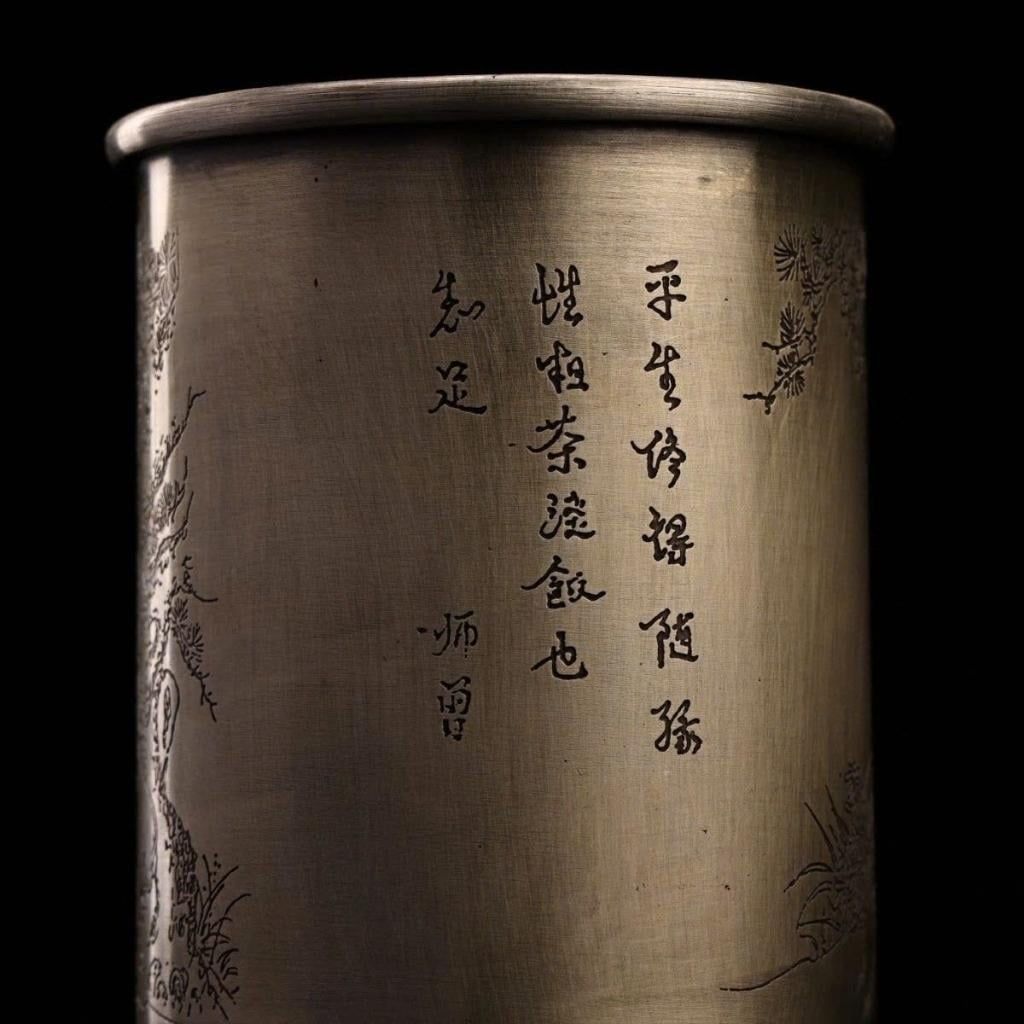 平生修得随緣
性粗茶淡飯也
知足
师曾